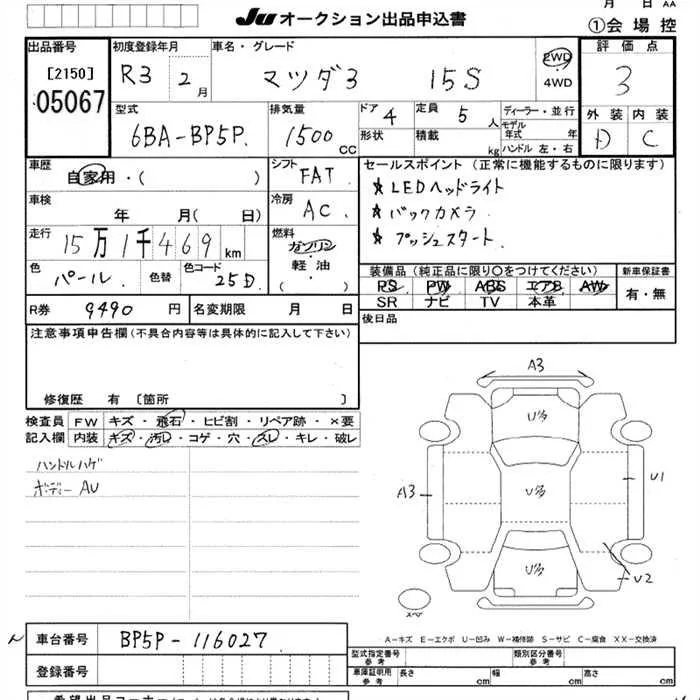 月 日 AA
JU オークション出品申込書
①会場控
出品番号
[2150]
05067
初度登録年月
R3 2月
車名・グレード
マツダ3 15S
2WD
4WD
評価点
3
型式
6BA-BP5P
排気量
1500 CC
ドア 4
形状
定員 5 人
積載 kg
ディーラー・並行
モデル年式 年
ハンドル 左・右
外装 内装
D C
車歴
自家用・( )
シフト
FAT
セールスポイント(正常に機能するものに限ります)
★LEDヘッドライト
★バックカメラ
★プッシュスタート
車検
年 月( 日)
冷房
AC
走行
15万1千469km
燃料
ガソリン
軽・油
( )
色
パール
色替
色コード
25D
装備品(純正品に限り○をつけてください)
PS PW ABS エアB AW
SR ナビ TV 本革
新車保証書
有・無
R券 9490 円
名変期限 月 日
後日品
注意事項申告欄(不具合内容等は具体的に記入して下さい)
修復歴 有 [箇所 ]
検査員記入欄
FW キズ・飛石・ヒビ割・リペア跡・×要
内装 キズ・汚レ・コゲ・穴・スレ・キレ・破レ
ハンドルハゲ
ボディーAU
A3
Uタ
A3
Uタ
U1
Uタ
U2
スペア
A-キズ E-エクボ U-凹み W-補修跡 S-サビ C-腐食 XX-交換済
車台番号
BP5P-116027
登録番号
型式指定番号
参考
類別区分番号
参考
車庫証明用
参考
長さ cm 幅 cm 高さ cm